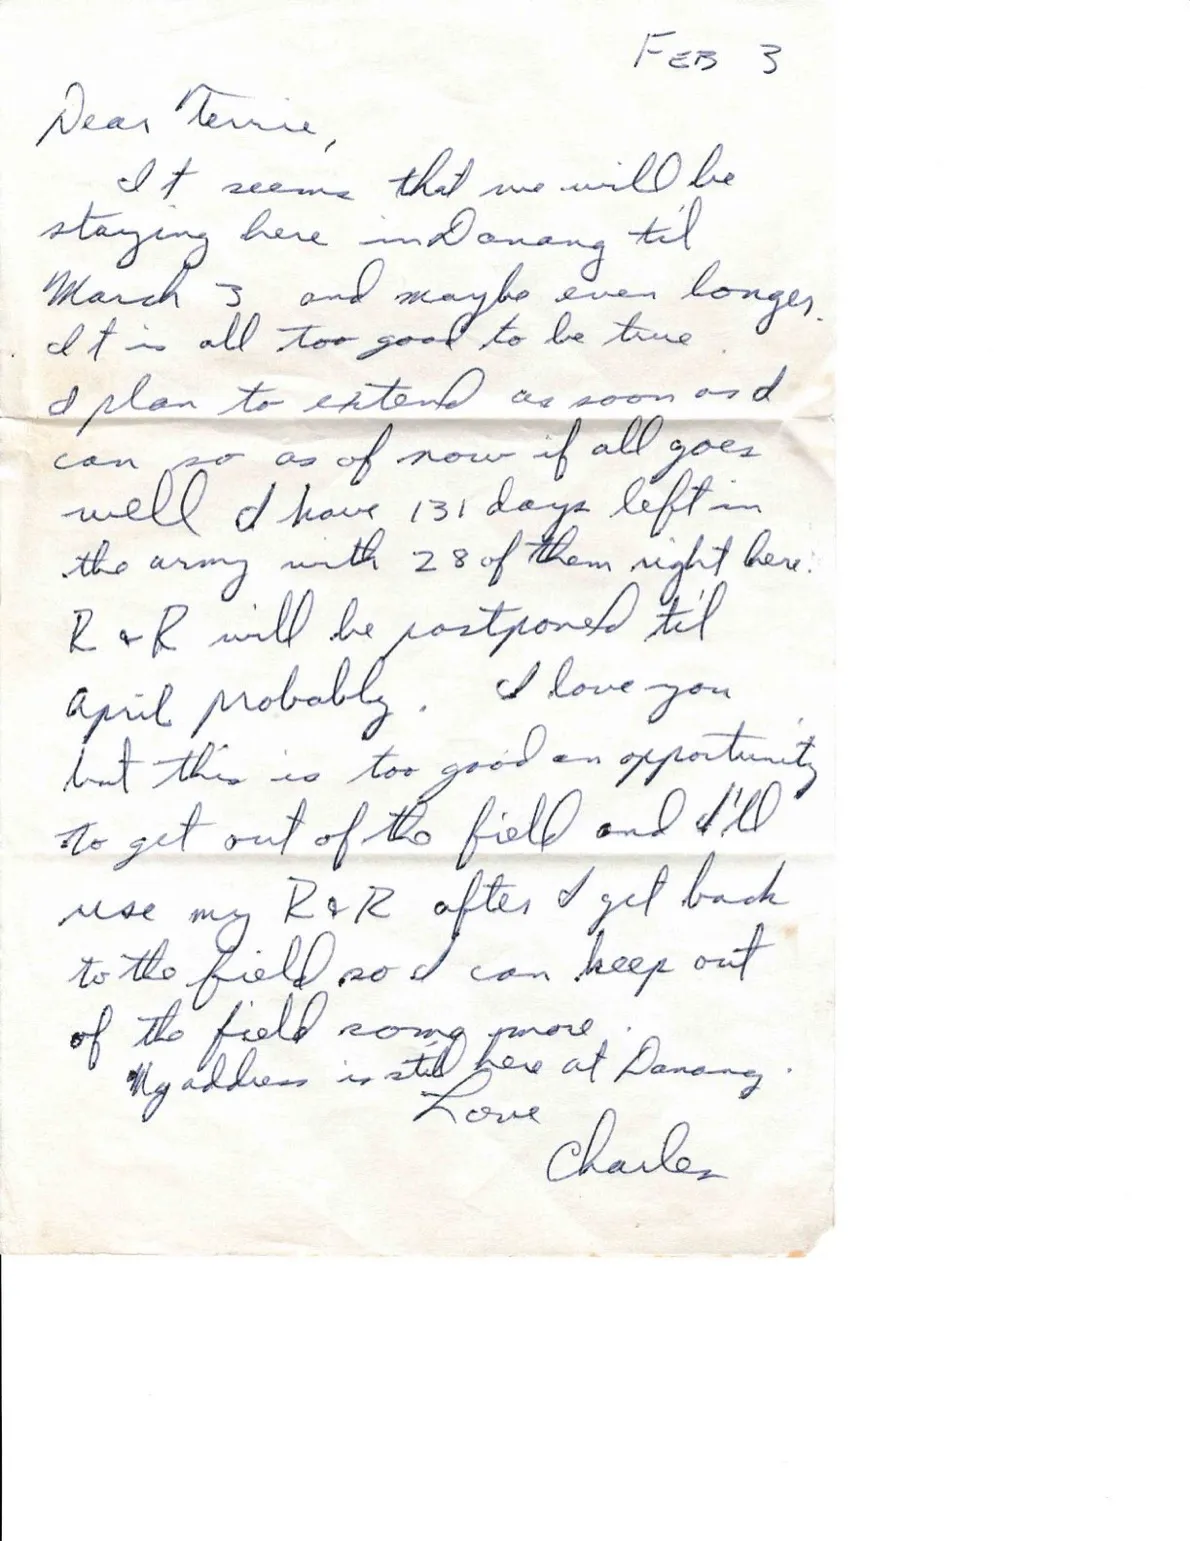 FEB 3
Dear Terrie,
It seems that we will be
staying here in Danang til
March 3 and maybe even longer.
It is all too good to be true.
I plan to extend as soon as I
can so as of now if all goes
well I have 131 days left in
the army with 28 of them right here.
R & R will be postponed til
April probably. I love you
but this is too good an opportunity
to get out of the field and I'll
use my R & R after I get back
to the field so I can keep out
of the field some more.
My address is still here at Danang.
Love
Charles